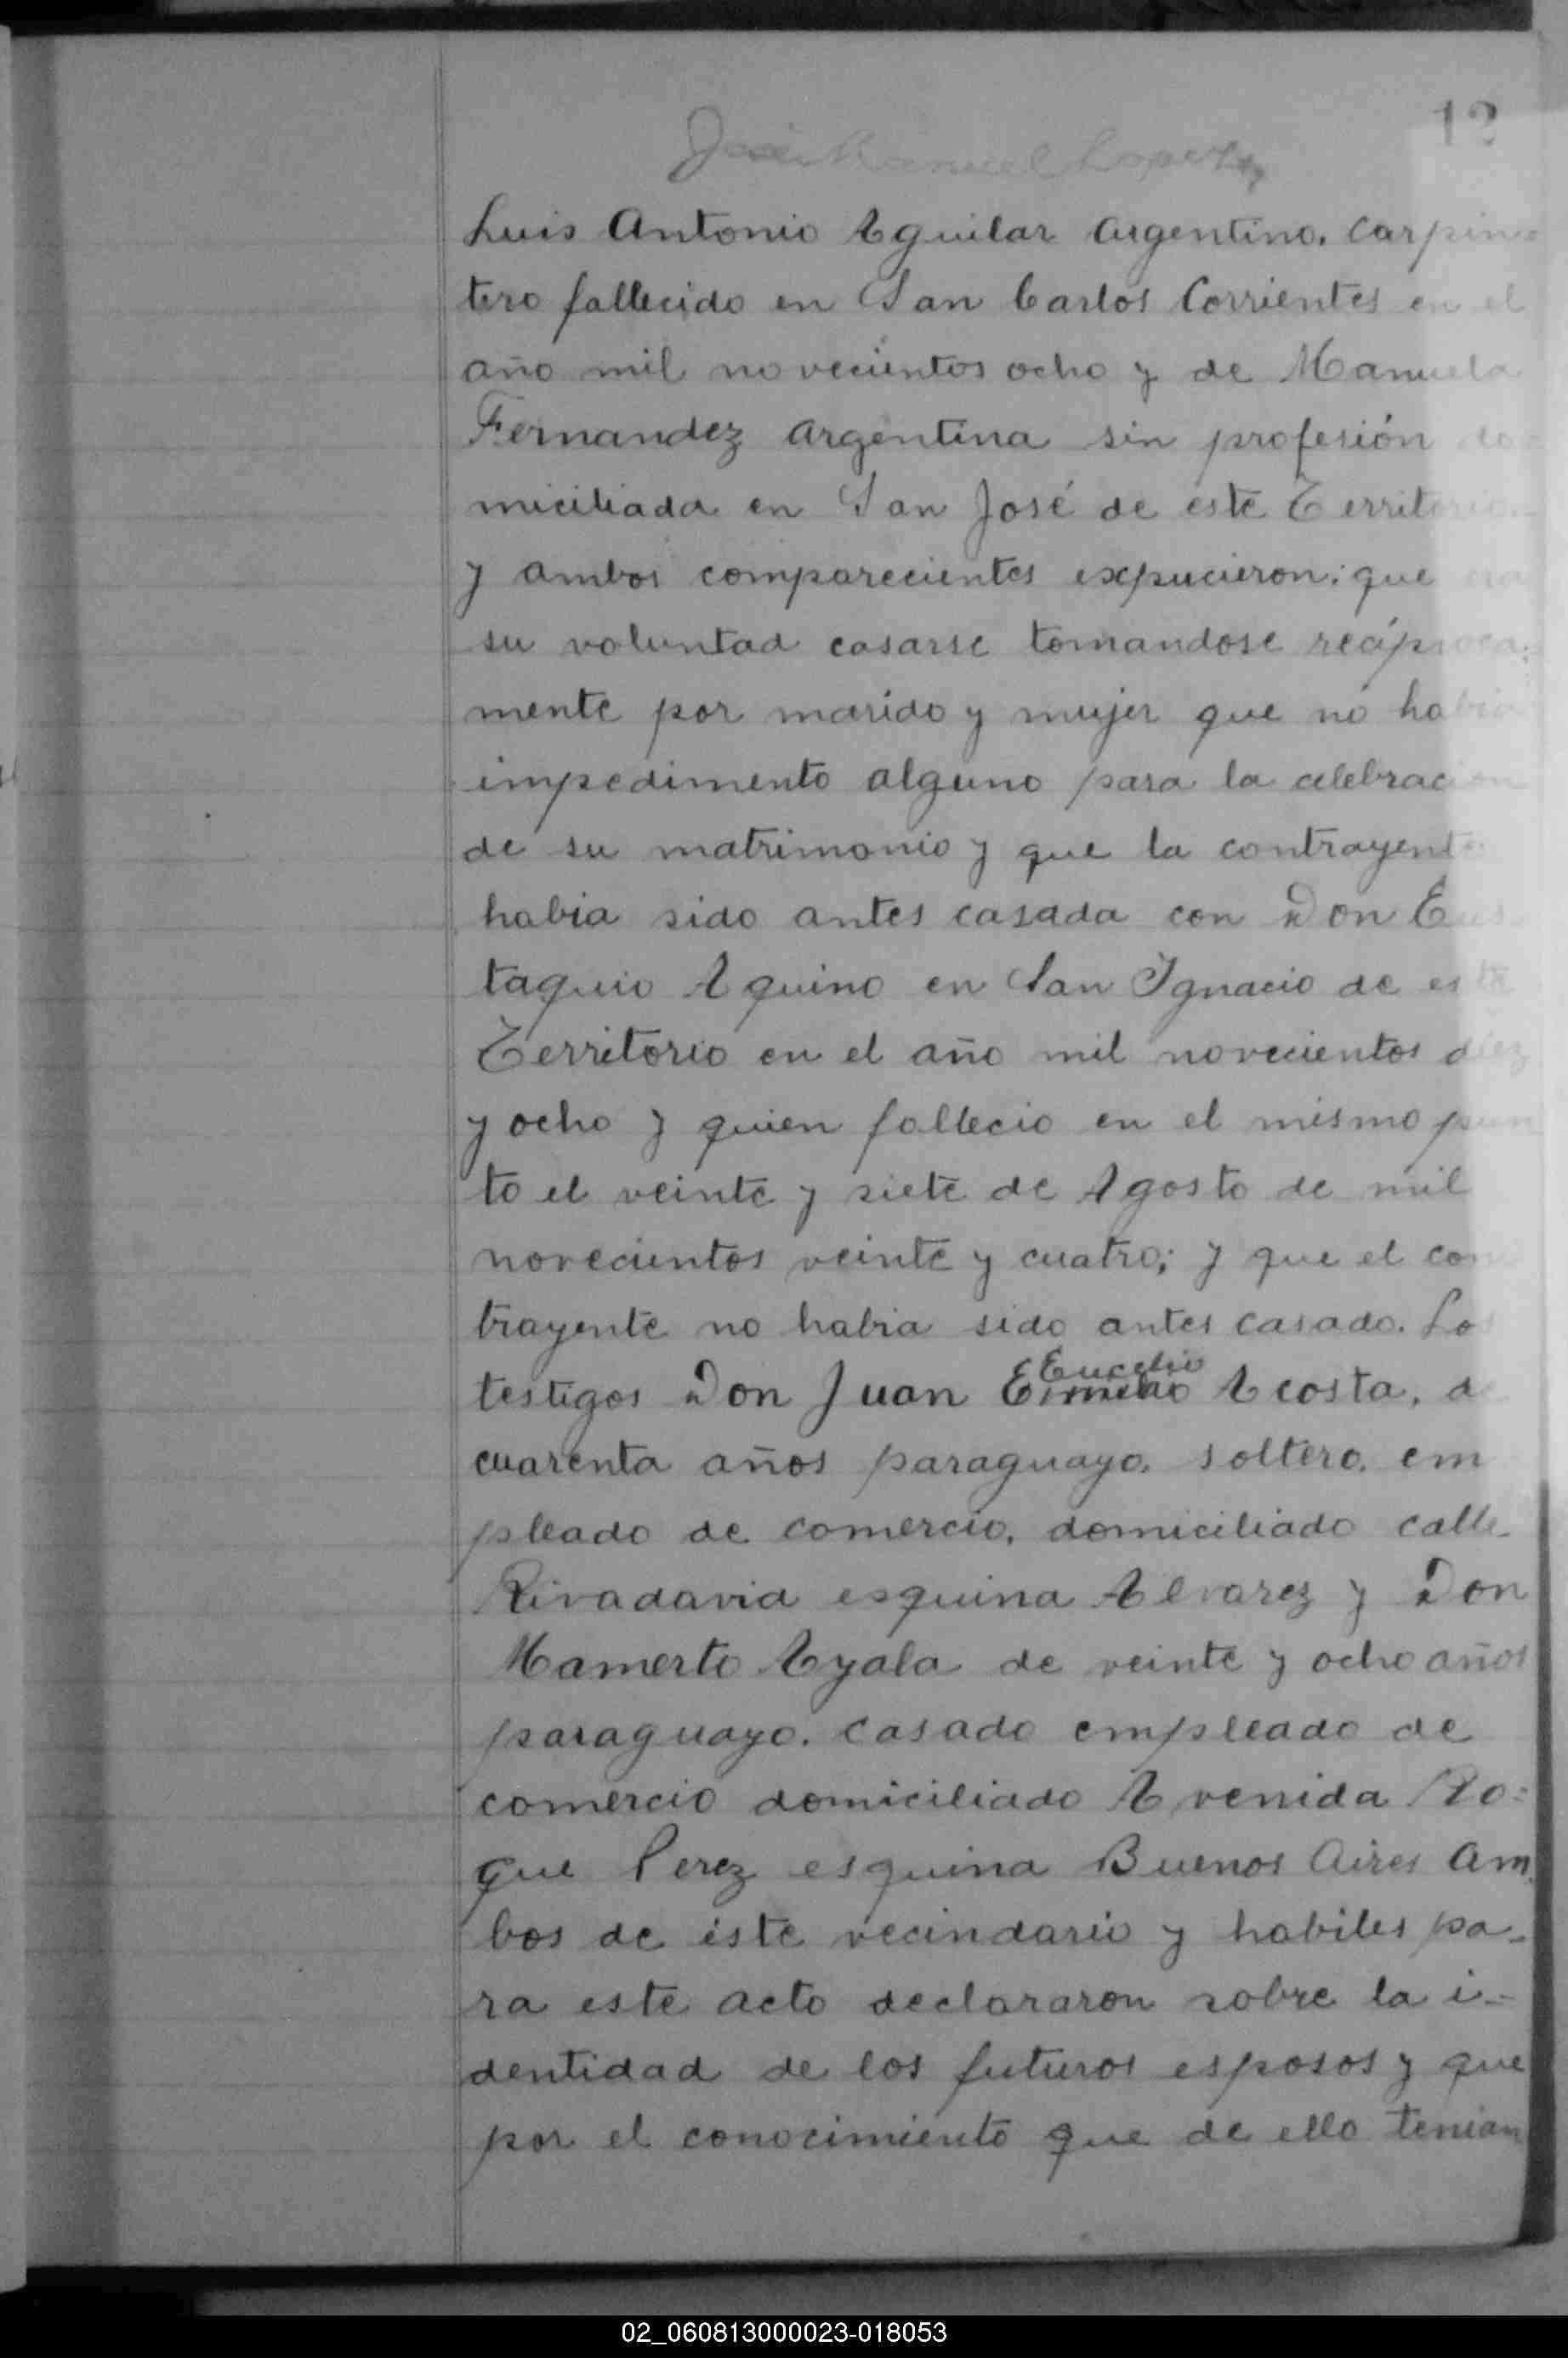 12
José Manuel Lopez
Luis Antonio Aguilar Argentino. Carpin
tero fallecido en San Carlos Corrientes en el
año mil novecientos ocho y de Manuela
Fernandez Argentina sin profesión do
miciliada en San José de este Territorio
y ambos comparecientes expucieron: que era
su voluntad casarse tomandose recíproca:
mente por marido y mujer que no habia
impedimento alguno para la celebracion
de su matrimonio y que la contrayente
habia sido antes casada con Don Eus
taquio Aquino en San Ignacio de este
Territorio en el año mil novecientos diez
y ocho y quien fallecio en el mismo pun
to el veinte y siete de Agosto de mil
novecientos veinte y cuatro; y que el con
trayente no habia sido antes casado. Los
Eucelio
testigos Don Juan Acosta, de
cuarenta años paraguayo. soltero. em
pleado de comercio. domiciliado calle
Rivadavia esquina Alvarez y Don
Mamerto Ayala de veinte y ocho años
paraguayo. casado empleado de
comercio domiciliado Avenida Ro=
que Perez esquina Buenos Aires Am
bos de este vecindario y habiles pa-
ra este acto declararon sobre la i=
dentidad de los futuros esposos y que
por el conocimiento que de ello tenian
02_060813000023-018053